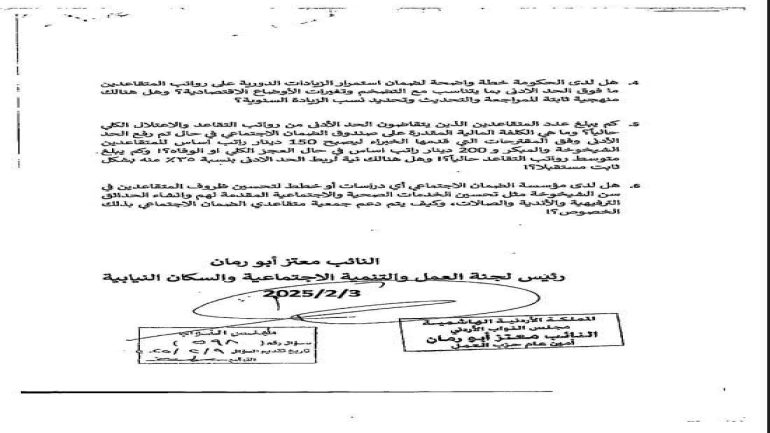 4. هل لدى الحكومة خطة واضحة لضمان استمرار الزيادات الدورية على رواتب المتقاعدين
ما فوق الحد الادنى بما يتناسب مع التضخم وتغيرات الأوضاع الاقتصادية؟ وهل هنالك
منهجية ثابتة للمراجعة والتحديث وتحديد نسب الزيادة السنوية؟
5. كم يبلغ عدد المتقاعدين الذين يتقاضون الحد الأدنى من رواتب التقاعد والاعتلال الكلي
حالياً؟ وما هي الكلفة المالية المقدرة على صندوق الضمان الاجتماعي في حال تم رفع الحد
الأدنى وفق المقترحات التي قدمها الخبراء ليصبح 150 دينار راتب أساس للمتقاعدين
الشيخوخة والمبكر و 200 دينار راتب اساس في حال العجز الكلي او الوفاة؟! وكم يبلغ
متوسط رواتب التقاعد حالياً؟! وهل هنالك نية لربط الحد الادنى بنسبة ٢٥% منه بشكل
ثابت مستقبلا؟!
6. هل لدى مؤسسة الضمان الاجتماعي أي دراسات أو خطط لتحسين ظروف المتقاعدين في
سن الشيخوخة مثل تحسين الخدمات الصحية والاجتماعية المقدمة لهم وإنشاء الحدائق
الترفيهية والأندية والصالات، وكيف يتم دعم جمعية متقاعدي الضمان الاجتماعي بذلك
الخصوص؟!
النائب معتز أبو رمان
رئيس لجنة العمل والتنمية الاجتماعية والسكان النيابية
2025/2/3
المملكة الأردنية الهاشمية
مجلس النواب الأردني
النائب معتز أبو رمان
أمين عام حزب العمل
مجلس النواب
سؤال رقم ( ٥٩٨ )
تاريخ تقديم السؤال ٢/٩